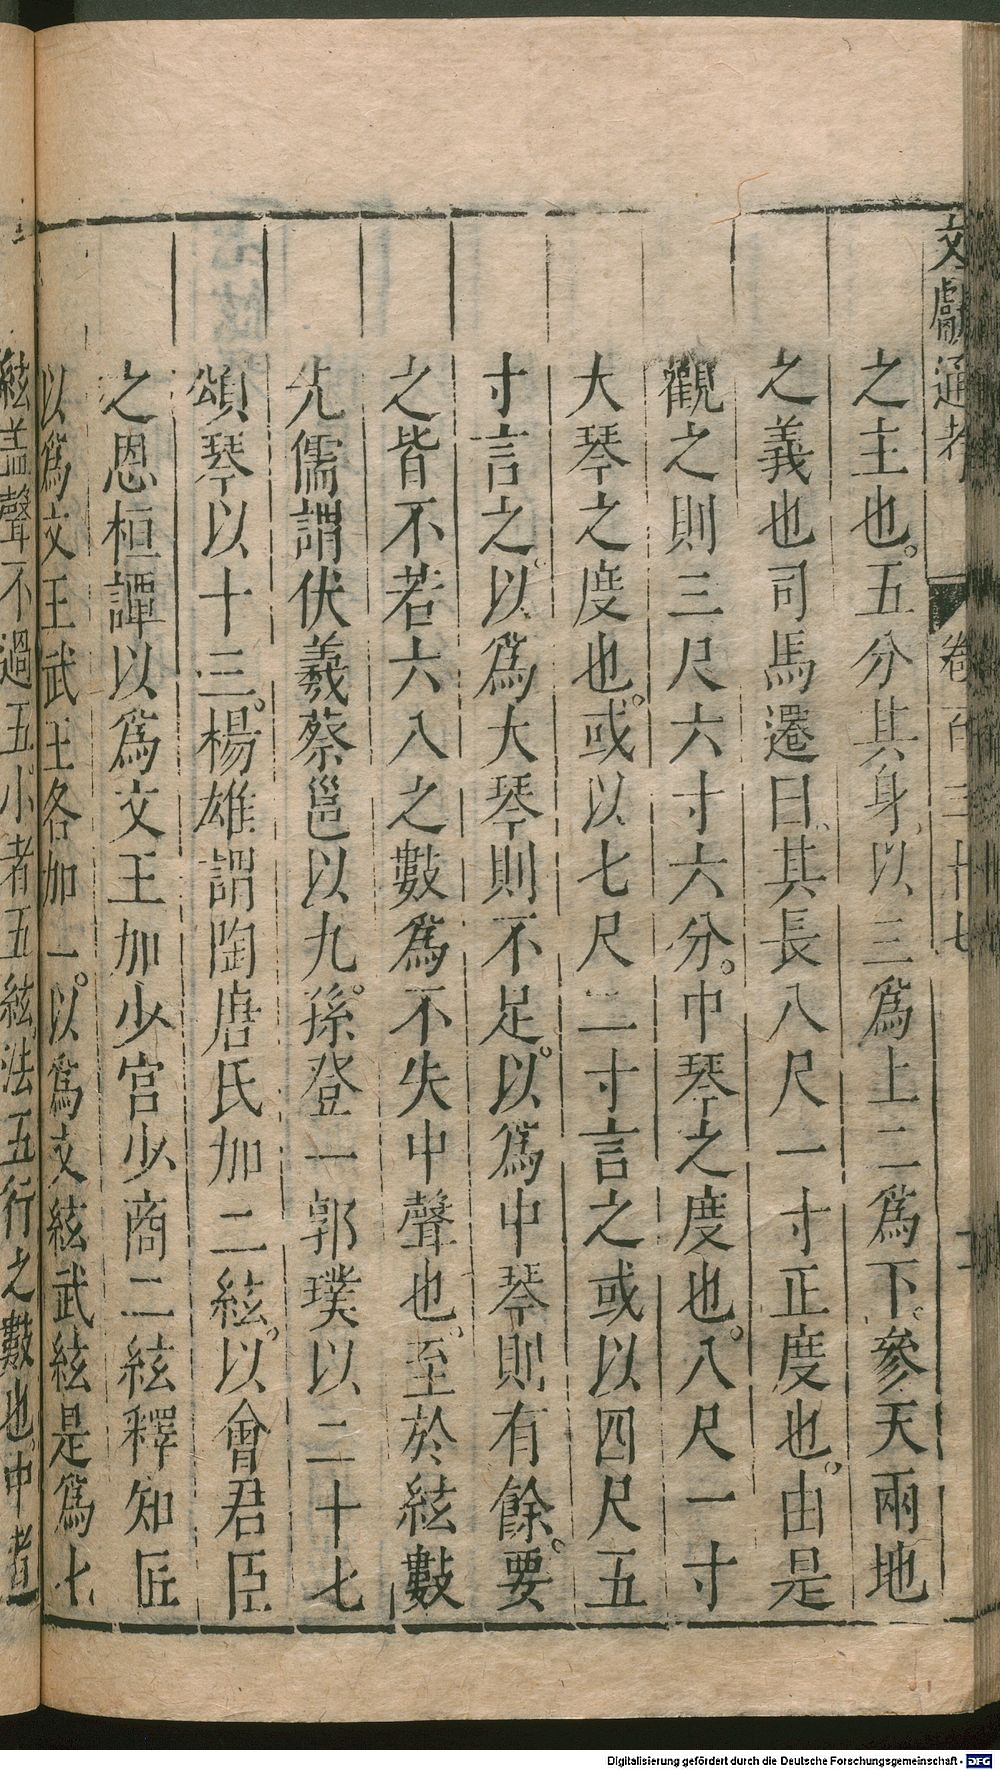 文獻通考 卷百三十七 十一
之主也。五分其身以三爲上二爲下。參天兩地
之義也司馬遷曰其長八尺一寸正度也。由是
觀之則三尺六寸六分。中琴之度也。八尺一寸
大琴之度也。或以七尺二寸言之或以四尺五
寸言之。以爲大琴則不足。以爲中琴則有餘。要
之皆不若六八之數爲不失中聲也。至於絃數
先儒謂伏羲蔡邕以九。孫登一郭璞以二十七
頌琴以十三。楊雄謂陶唐氏加二絃。以會君臣
之恩桓譚以爲文王加少宮少商二絃釋知匠
以爲文王武王各加一。以爲文絃武絃是爲七
絃蓋聲不過五小者五絃法五行之數也。中者
Digitalisierung gefördert durch die Deutsche Forschungsgemeinschaft - DFG